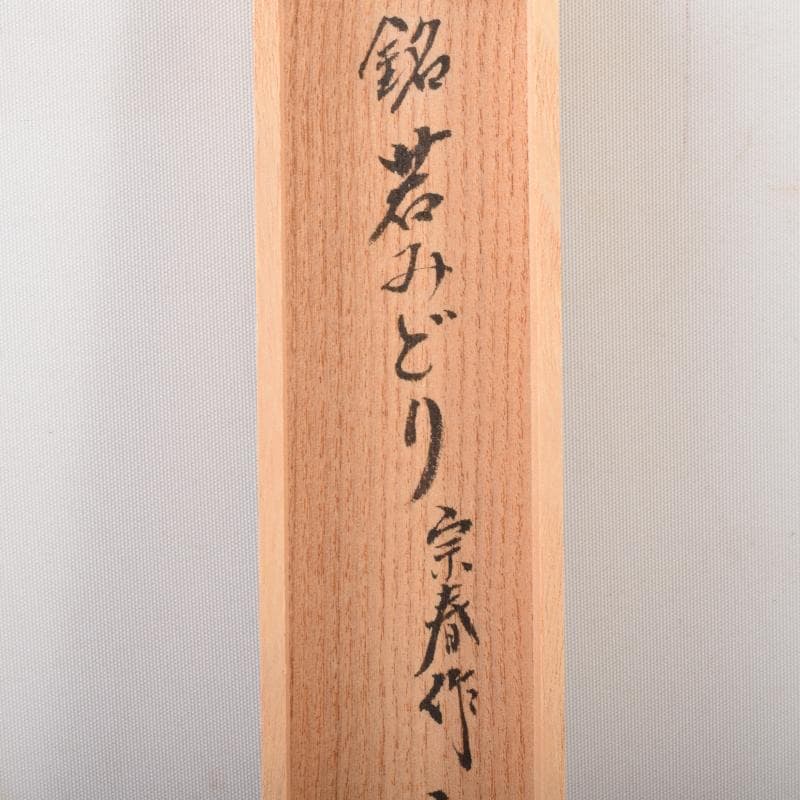 銘 若みどり
宗春作